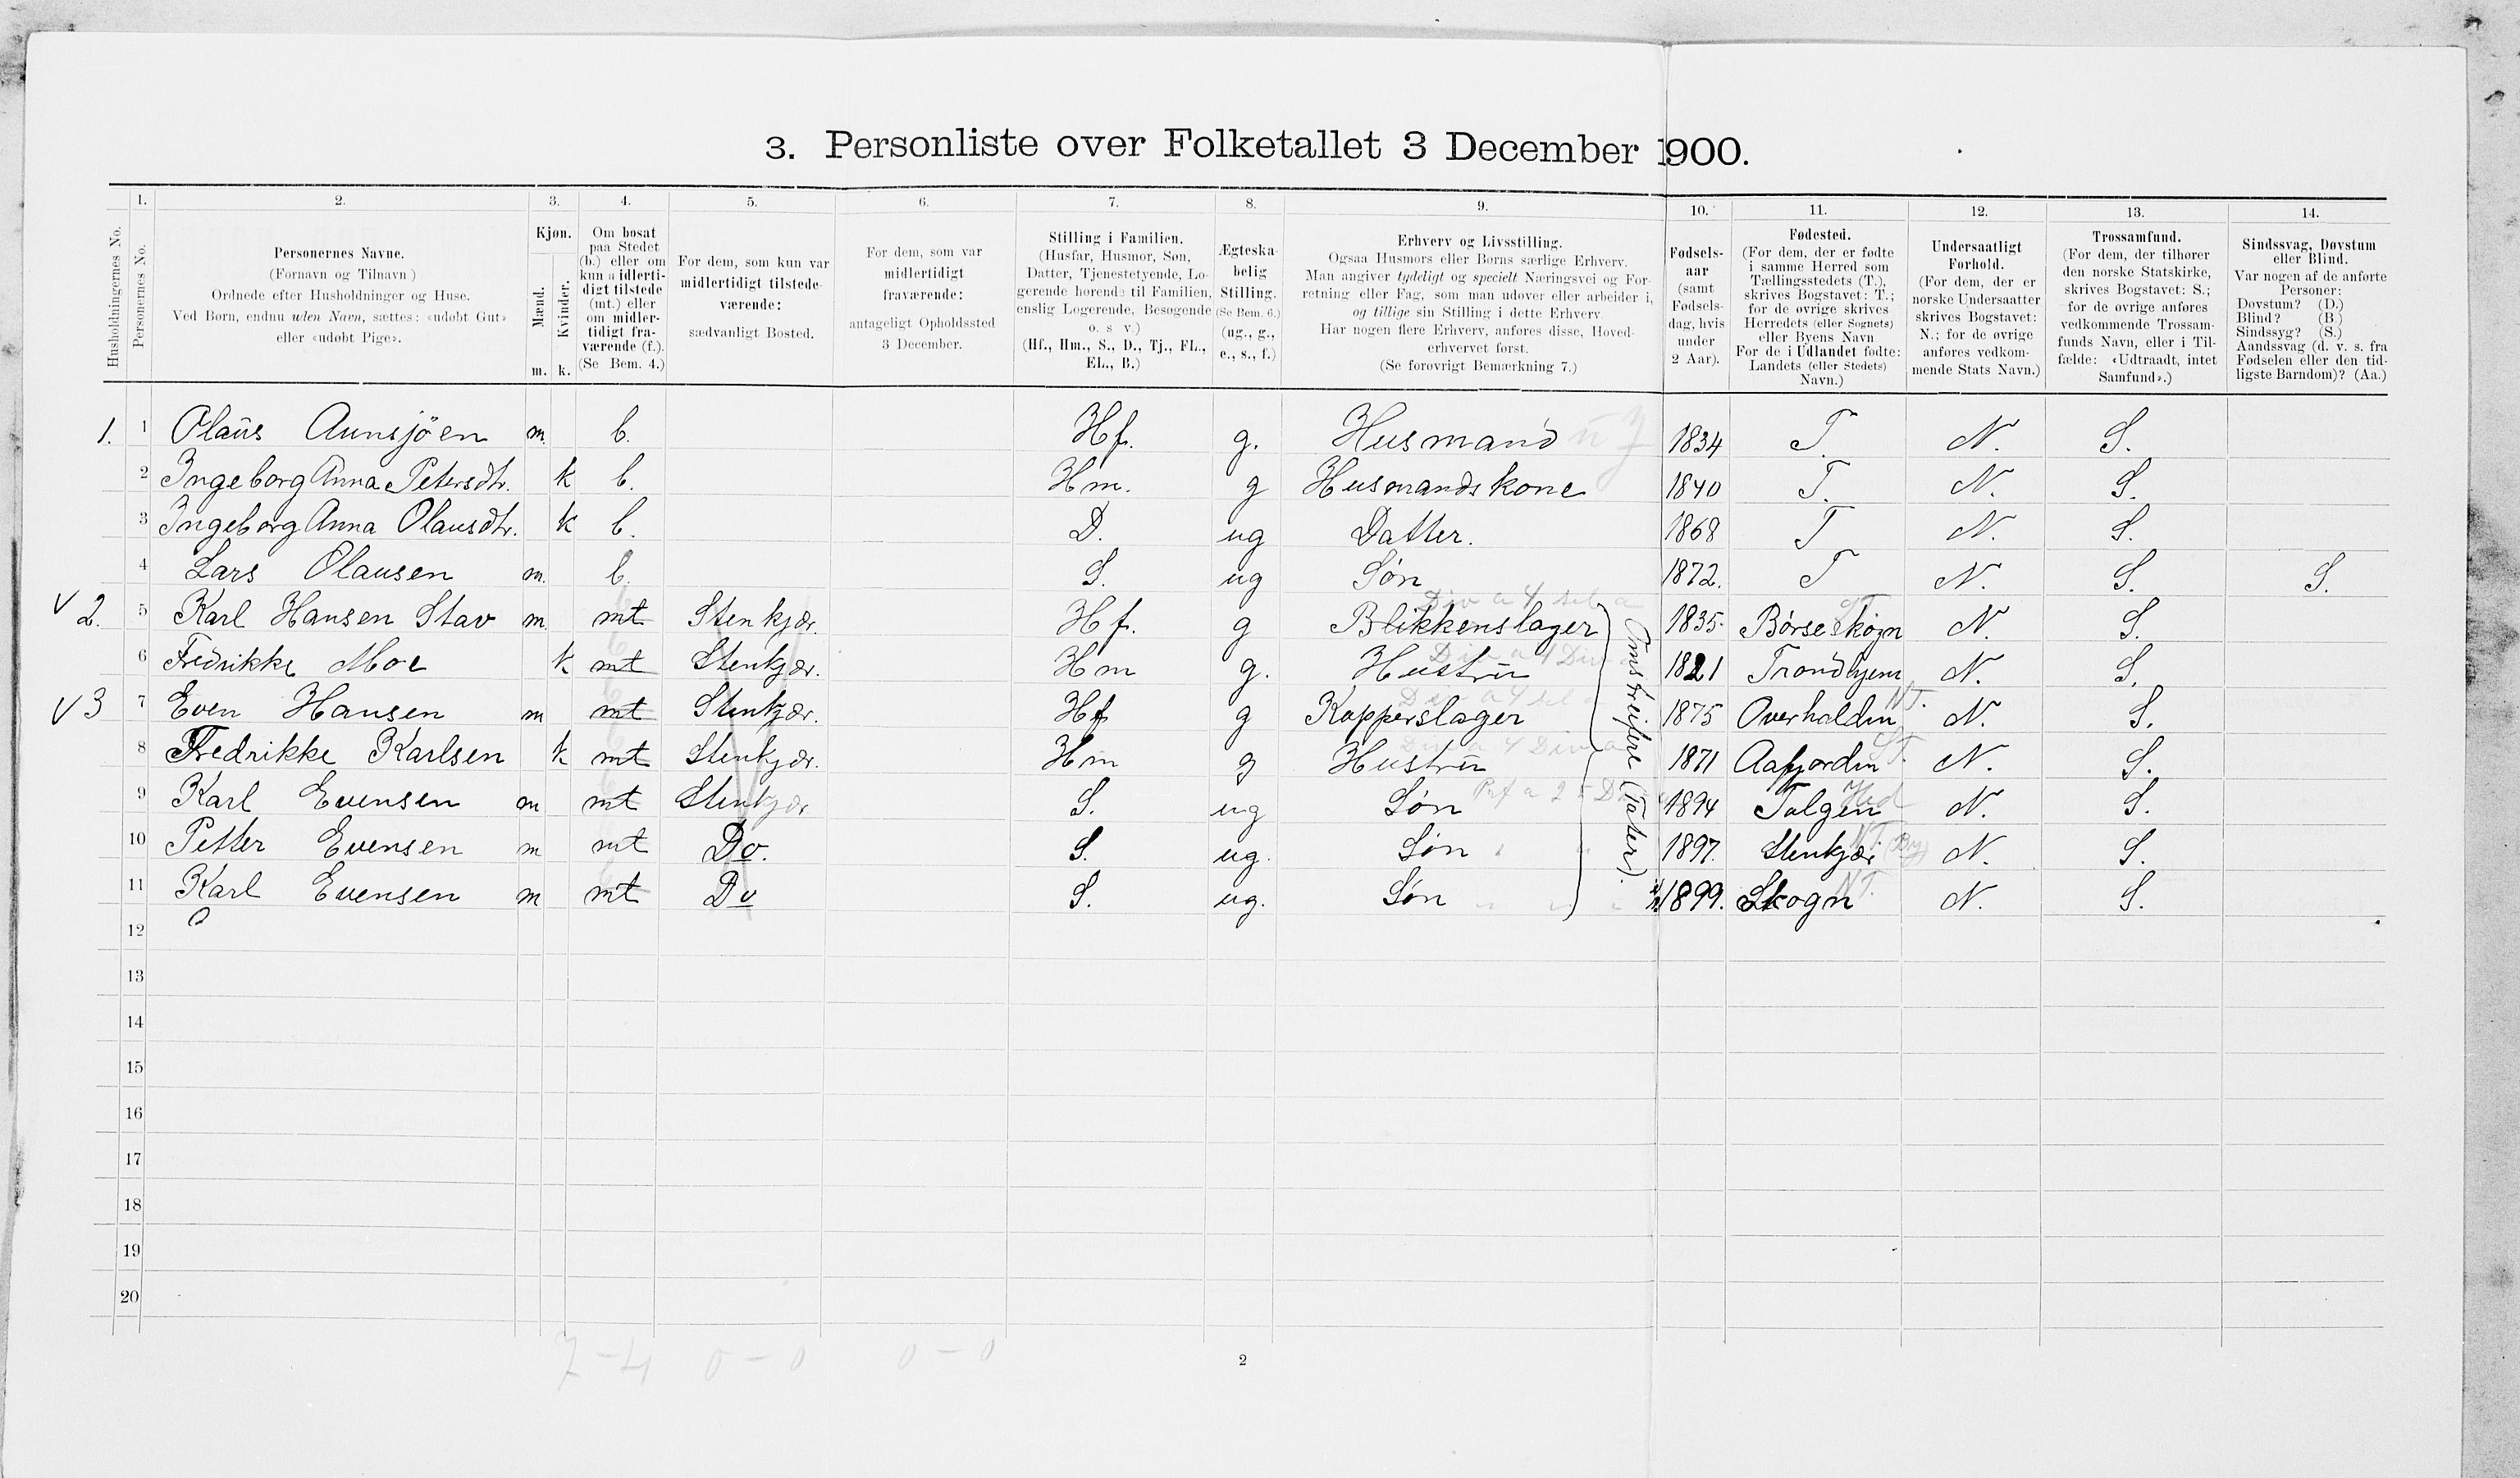 3. Personliste over Folketallet 3 December 1900.
1. 2. 3. 4. 5. 6. 7. 8. 9. 10. 11. 12. 13. 14.
Husholdningernes No.
Personernes No.
Personernes Navne.
(Fornavn og Tilnavn)
Ordnede efter Husholdninger og Huse.
Ved Børn, endnu uden Navn, sættes: «udøbt Gut»
eller «udøbt Pige».
Kjøn.
Mænd.
Kvinder.
m. k.
Om bosat
paa Stedet
(b.) eller om
kun midlerti-
digt tilstede
(mt.) eller
om midler-
tidigt fra-
værende (f.).
(Se Bem. 4.)
For dem, som kun var
midlertidigt tilstede-
værende:
sædvanligt Bosted.
For dem, som var
midlertidigt
fraværende:
antageligt Opholdssted
3 December.
Stilling i Familien.
(Husfar, Husmor, Søn,
Datter, Tjenestetyende, Lo-
gerende hørende til Familien,
enslig Logerende, Besøgende
o. s v.)
(Hf., Hm., S., D., Tj., FL.,
EL., B.)
Ægteska-
belig
Stilling.
(Se Bem. 6.)
(ug., g.,
e., s., f.)
Erhverv og Livsstilling.
Ogsaa Husmors eller Børns særlige Erhverv.
Man angiver tydeligt og specielt Næringsvei og For-
retning eller Fag, som man udøver eller arbeider i,
og tillige sin Stilling i dette Erhverv.
Har nogen flere Erhverv, anføres disse, Hoved-
erhvervet først.
(Se forøvrigt Bemærkning 7.)
Fødsels-
aar
(samt
Fødsels-
dag, hvis
under
2 Aar).
Fødested.
(For dem, der er fødte
i samme Herred som
Tællingsstedets (T.),
skrives Bogstavet: T.;
for de øvrige skrives
Herredets (eller Sognets)
eller Byens Navn
For de i Udlandet fødte:
Landets (eller Stedets)
Navn.)
Undersaatligt
Forhold.
(For dem, der er
norske Undersaatter
skrives Bogstavet:
N.; for de øvrige
anføres vedkom-
mende Stats Navn.)
Trossamfund.
(For dem, der tilhører
den norske Statskirke,
skrives Bogstavet: S.;
for de øvrige anføres
vedkommende Trossam-
funds Navn, eller i Til-
fælde: «Udtraadt, intet
Samfund».)
Sindssvag, Døvstum
eller Blind.
Var nogen af de anførte
Personer:
Døvstum? (D.)
Blind? (B.)
Sindssyg? (S.)
Aandssvag (d. v. s. fra
Fødselen eller den tid-
ligste Barndom)? (Aa.)
1. 1 Olaus Aunsjöen m. b. Hf. g. Husmand 1834 T. N. S.
2 Ingeborg Anna Petersdtr. k b. Hm. g Husmandskone 1840 T. N. S.
3 Ingeborg Anna Olausdtr. k b. D. ug Datter. 1868 T N. S.
4 Lars Olausen m. b. S. ug Søn 1872. T N. S. S.
√ 2. 5 Karl Hansen Stav m. mt Stenkjær. Hf. g Blikkenslager 1835. Børseskogn N. S.
6 Fredrikke Moe k mt Stenkjær. Hm g. Hustru 1821 Trondhjem N. S.
√ 3 7 Even Hansen m mt Stenkjær. Hf g Kopperslager 1875 Overhalden NT. N. S.
8 Fredrikke Karlsen k mt Stenkjær. Hm g Hustru 1871 Aafjorden ST. N. S.
9 Karl Evensen m mt Stenkjær S. ug Søn 1894 Tolgen Hed N. S.
10 Petter Evensen m mt Do. S. ug. Søn 1897. Stenkjær NT. (By) N. S.
11 Karl Evensen m mt Do S. ug. Søn 1899. Skogn NT. N. S.
Omstreifere (Tatere).
12
13
14
15
16
17
18
19
20
7-4 0-0 0-0
2